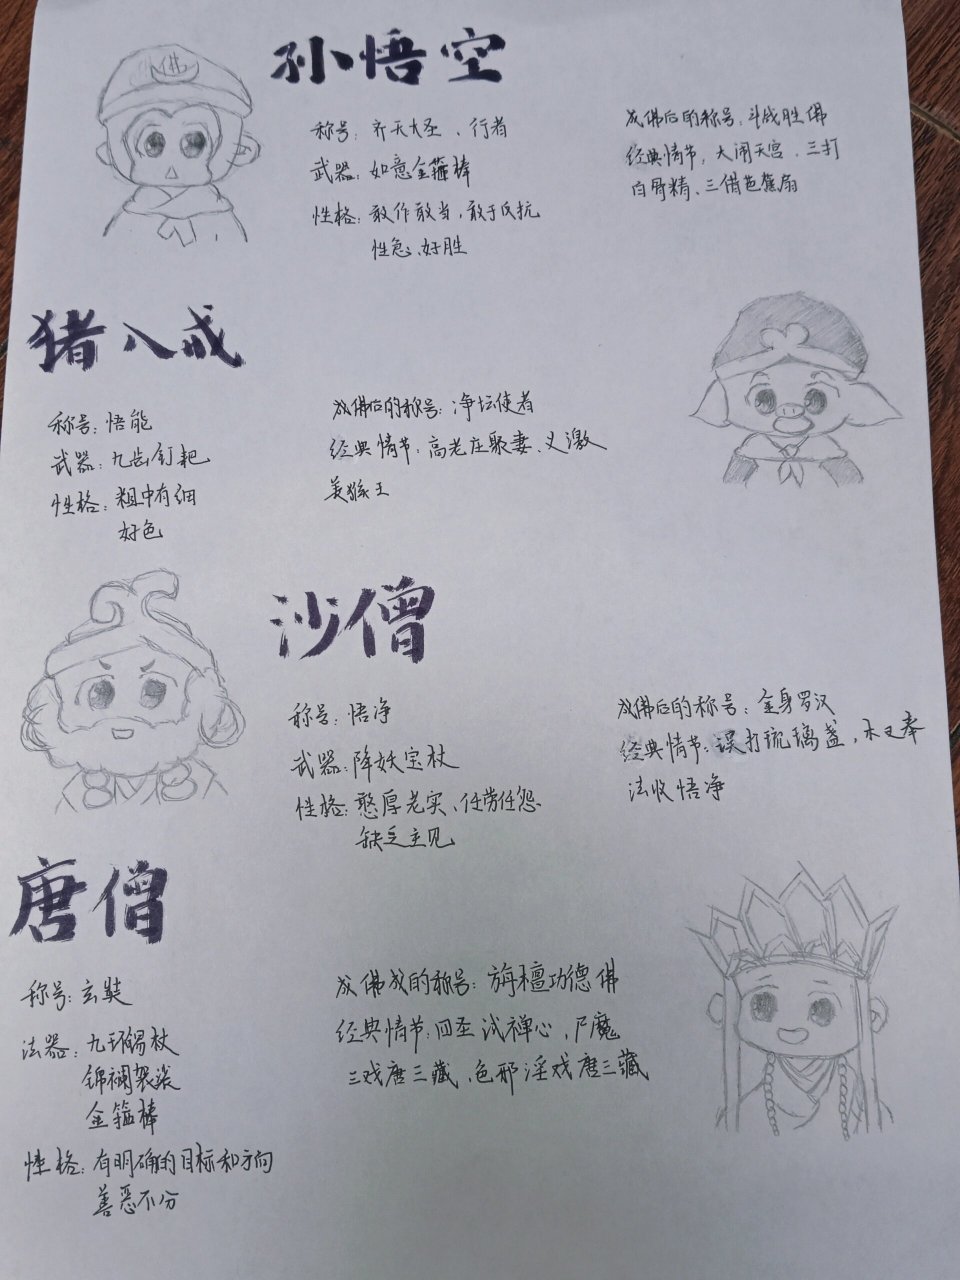 佛
孙悟空
称号：齐天大圣、行者
武器：如意金箍棒
性格：敢作敢当，敢于反抗
性急、好胜
成佛后的称号：斗战胜佛
经典情节：大闹天宫、三打
白骨精、三借芭蕉扇
猪八戒
称号：悟能
武器：九齿钉耙
性格：粗中有细
好色
成佛后的称号：净坛使者
经典情节：高老庄聚妻、义激
美猴王
沙僧
称号：悟净
武器：降妖宝杖
性格：憨厚老实、任劳任怨
缺乏主见
成佛后的称号：金身罗汉
经典情节：误打琉璃盏，木叉奉
法收悟净
唐僧
称号：玄奘
法器：九环锡杖
锦襕袈裟
金箍棒
性格：有明确的目标和方向
善恶不分
成佛成的称号：旃檀功德佛
经典情节：四圣试禅心，尸魔
三戏唐三藏、色邪淫戏唐三藏